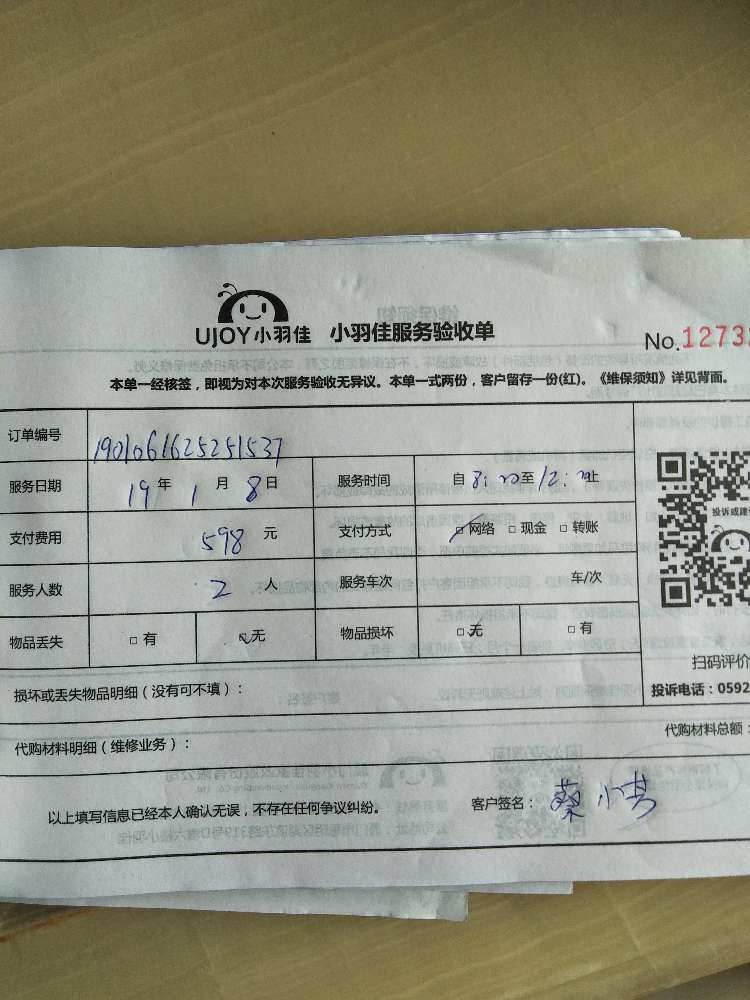 UJOY小羽佳 小羽佳服务验收单
No.12732
本单一经核签，即视为对本次服务验收无异议。本单一式两份，客户留存一份(红)。《维保须知》详见背面。
订单编号 1901061625251537
服务日期 19 年 1 月 8 日 服务时间 自 8:20 至 12:20 止
支付费用 598 元 支付方式 网络 现金 转账
服务人数 2 人 服务车次 车/次
物品丢失 有 无 物品损坏 无 有
投诉或建
扫码评价
损坏或丢失物品明细（没有可不填）：
投诉电话：0592
代购材料明细（维修业务）：
代购材料总额：
以上填写信息已经本人确认无误，不存在任何争议纠纷。 客户签名： 蔡小